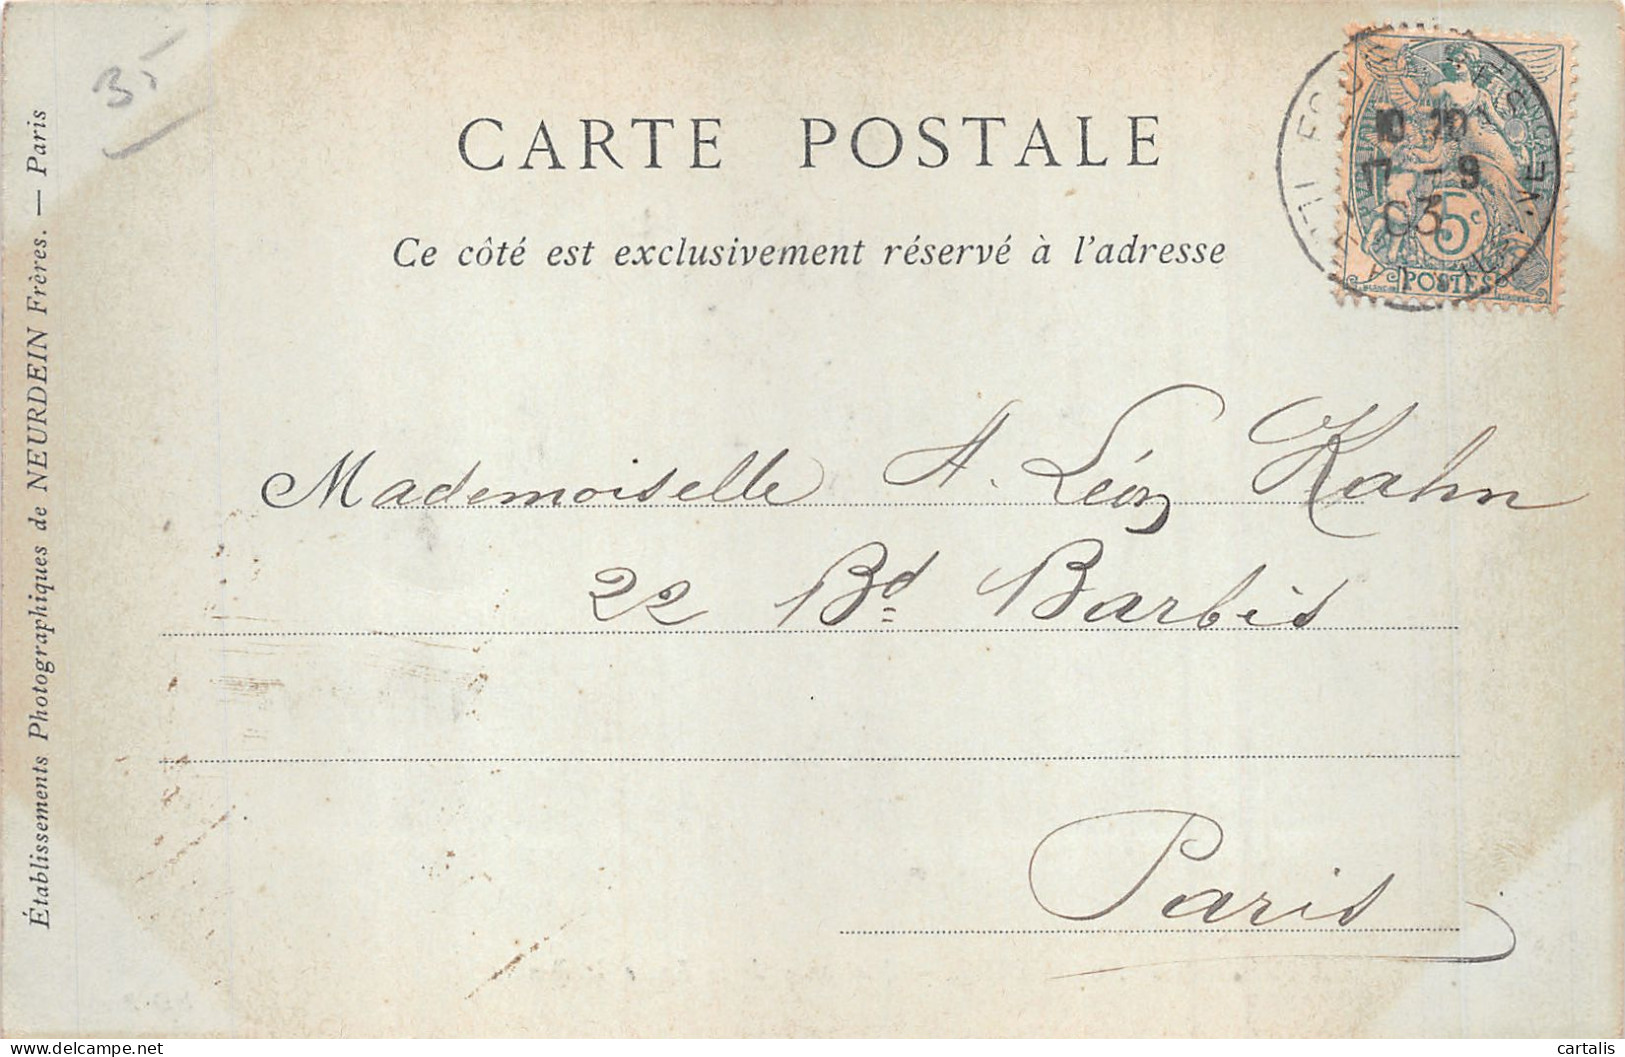 35
CARTE POSTALE
Ce côté est exclusivement réservé à l'adresse
10 10
17 - 9
03
5c
POSTES
Mademoiselle A. Léon Kahn
22 Bd Barbès
Paris
Établissements Photographiques de NEURDEIN Frères. — Paris
delcampe.net
cartalis